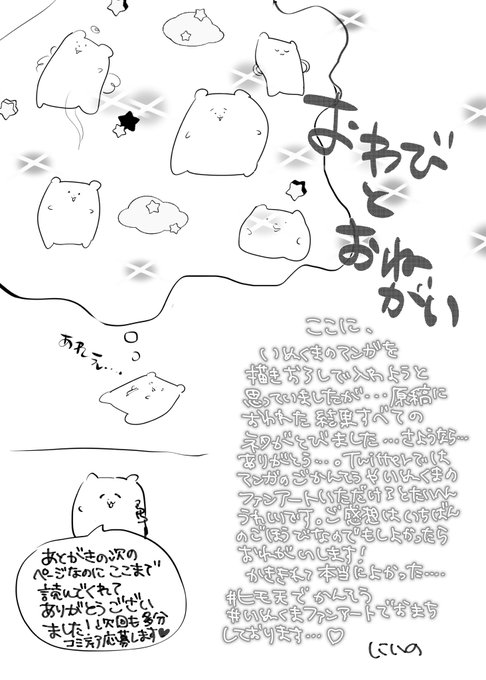 おわび
と
おねがい
ここに、
いぬくまのマンガを
描きおろしで入れようと
思っていましたが・・・原稿に
おわれた結果すべての
ネタがとびました…さようなら…
ありがとう…。Twitterでは
マンガのごかんそうやいぬくまの
ファンアートいただけるとたいへん
うれしいです。ご感想はいちばん
のごほうびなのでもしよかったら
おねがいします!
かききれて本当によかった・・・・
でかんそう
#いぬくまファンアートでおまち
しております…♡
にいの
あれ
え…
あとがきの次の
ページなのにここまで
読んでくれて
ありがとうござい
ました!次回も多分
コミティア応募します♥